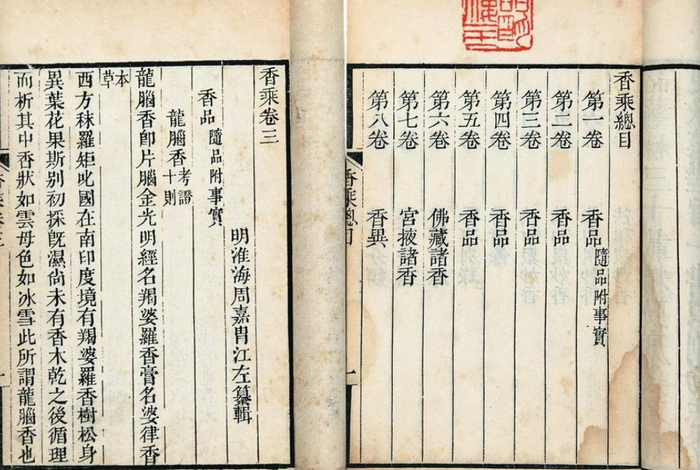 香乘總目
第一卷 香品 隨品附事實
第二卷 香品
第三卷 香品
第四卷 香品
第五卷 香品
第六卷 佛藏諸香
第七卷 宮掖諸香
第八卷 香異
香乘總目 一
香乘卷三
明淮海周嘉胄江左纂輯
香品 隨品附事實
龍腦香 考證十則
龍腦香卽片腦金光明經名羯婆羅香膏名婆律香
本草
西方秣羅矩叱國在南印度境有羯婆羅香樹松身
異葉花果斯別初採旣濕尚未有香木乾之後循理
而析其中香狀如雲母色如冰雪此所謂龍腦香也